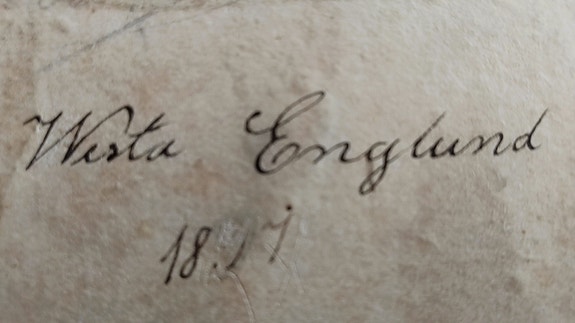 Westa Englund